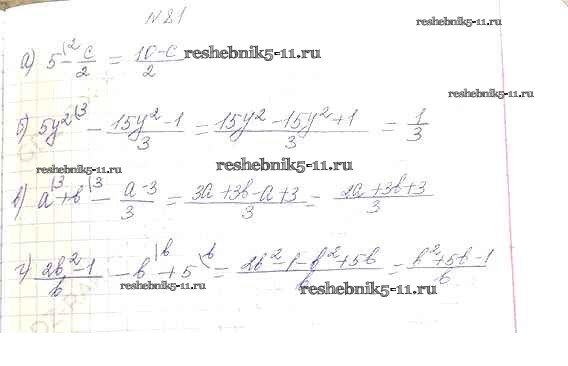 №81
reshebnik5-11.ru
а) 5^{\2 - c/2 = (10-c)/2 reshebnik5-11.ru
reshebnik5-11.ru
б) 5y²^{\3 - (15y²-1)/3 = (15y²-15y²+1)/3 = 1/3
reshebnik5-11.ru reshebnik5-11.ru
в) a^{\3 + b^{\3 - (a-3)/3 = (3a+3b-a+3)/3 = (2a+3b+3)/3
г) (2b²-1)/b - b^{\b + 5^{\b = (2b²-1-b²+5b)/b = (b²+5b-1)/b
reshebnik5-11.ru reshebnik5-11.ru